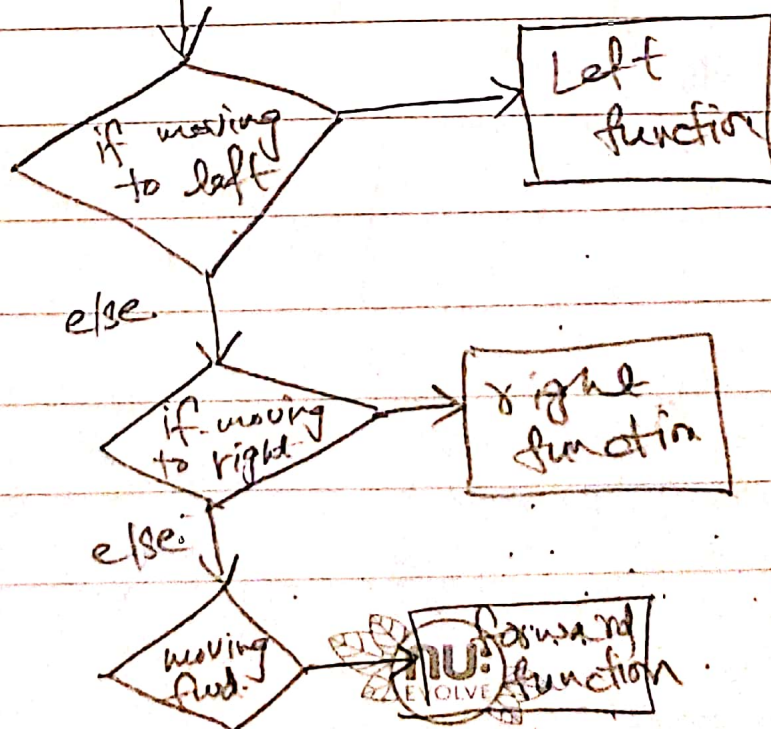 if moving
to left
Left
function
else
if moving
to right
right
function
else
moving
fwd.
forward
function
nu:
EVOLVE